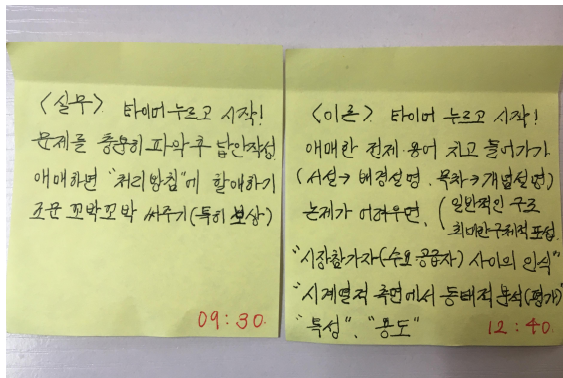 <실무> 타이머 누르고 시작!
문제를 충분히 파악 후 답안작성
애매하면 "처리방침"에 할애하기
조문 꼬박꼬박 써주기(특히 보상)
09:30.
<이론> 타이머 누르고 시작!
애매한 전제·용어 치고 들어가기
(서설→배경설명, 목차→개념설명)
논제가 어려우면, (일반적인 구조
최대한 구체적 포섭
"시장참가자(수요 공급자) 사이의 인식"
"시계열적 측면에서 동태적 분석(평가)"
"특성", "용도"
12:40.